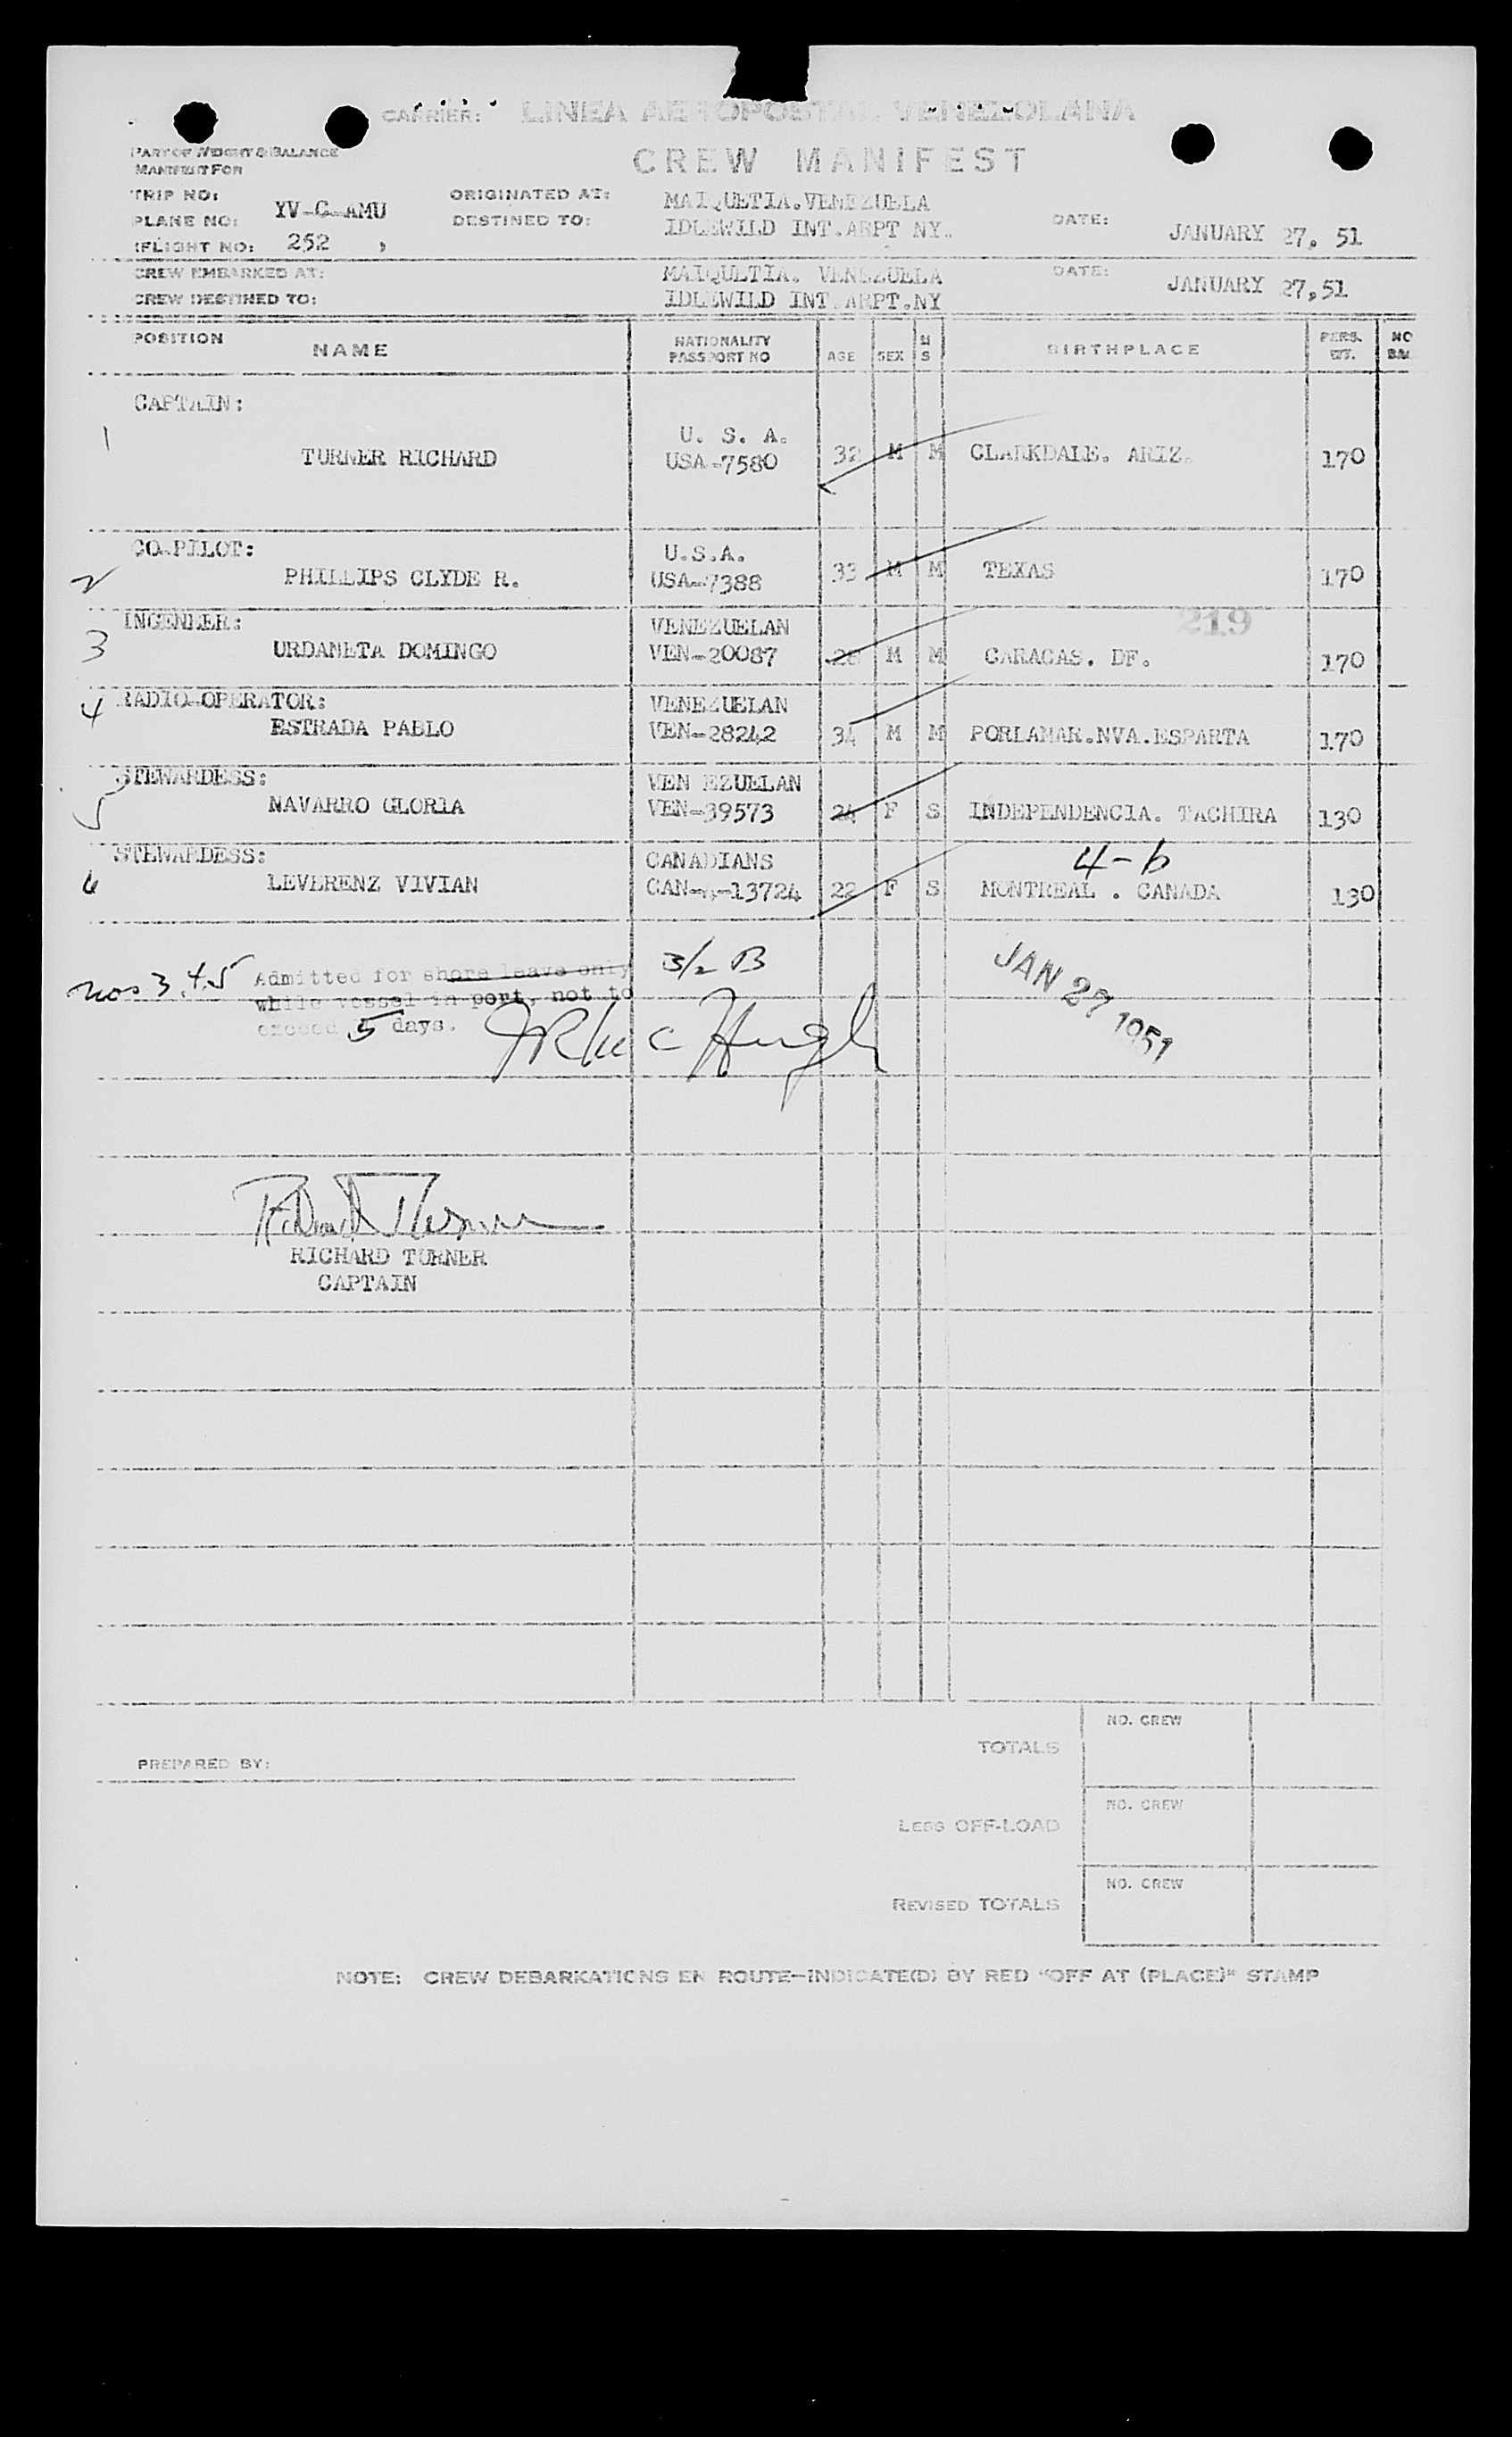 CARRIER: LINEA AEROPOSTAL VENEZOLANA
PART OF WEIGHT & BALANCE
MANIFEST FOR
CREW MANIFEST
TRIP NO:
PLANE NO: YV-C-AMU
FLIGHT NO: 252 ,
ORIGINATED AT: MAIQUETIA.VENEZUELA
DESTINED TO: IDLEWILD INT.ARPT NY.
DATE: JANUARY 27, 51
CREW EMBARKED AT: MAIQUETIA. VENEZUELA
DATE: JANUARY 27,51
CREW DESTINED TO: IDLEWILD INT ARPT.NY
POSITION NAME NATIONALITY PASSPORT NO AGE SEX M S BIRTHPLACE PERS. WT. NO
CAPTAIN:
U. S. A.
1 TURNER RICHARD USA-7580 32 M M CLARKDALE. ARIZ. 170
CO.PILOT: U.S.A.
2 PHILLIPS CLYDE R. USA-7388 33 M M TEXAS 170
INGENEER: VENEZUELAN 219
3 URDANETA DOMINGO VEN-20087 28 M M CARACAS. DF. 170
RADIO-OPERATOR: VENEZUELAN
4 ESTRADA PABLO VEN-28242 34 M M PORLAMAR.NVA.ESPARTA 170
STEWARDESS: VEN EZUELAN
5 NAVARRO GLORIA VEN-39573 24 F S INDEPENDENCIA. TACHIRA 130
STEWARDESS: CANADIANS 4-b
6 LEVERENZ VIVIAN CAN-4-13724 22 F S MONTREAL . CANADA 130
nos 3.4.5 Admitted for shore leave only 3/2 B
while vessel in port, not to
exceed 5 days.
JAN 27 1951
Richard Turner
RICHARD TURNER
CAPTAIN
PREPARED BY:
TOTALS NO. CREW
LESS OFF-LOAD NO. CREW
REVISED TOTALS NO. CREW
NOTE: CREW DEBARKATIONS EN ROUTE-INDICATE(D) BY RED "OFF AT (PLACE)" STAMP